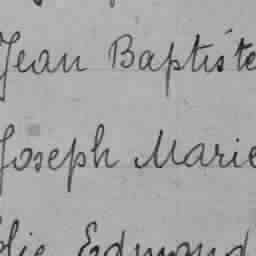 Jean Baptiste
Joseph Marie
Edmond